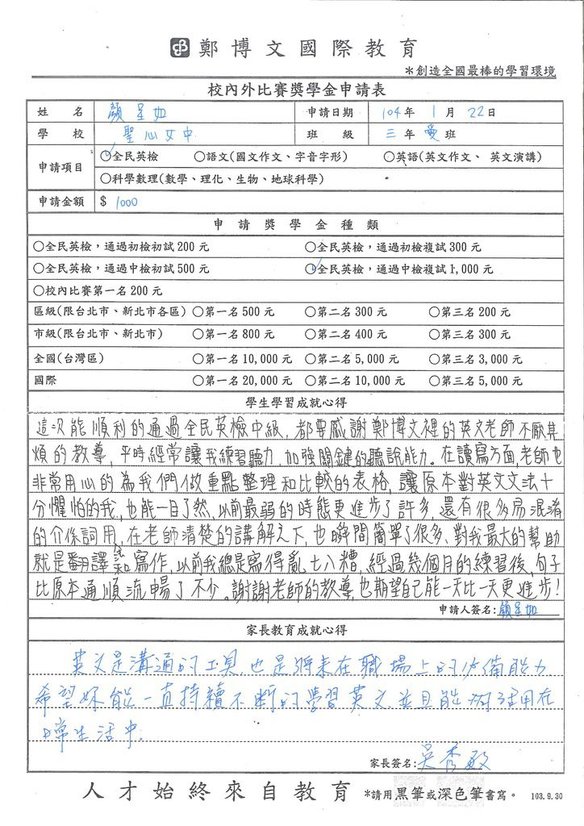 鄭博文國際教育
*創造全國最棒的學習環境
校內外比賽獎學金申請表
姓名 顏星如 申請日期 104年1月22日
學校 聖心女中 班級 三年愛班
申請項目 ○全民英檢 ○語文(國文作文、字音字形) ○英語(英文作文、英文演講)
○科學數理(數學、理化、生物、地球科學)
申請金額 $ 1000
申請獎學金種類
○全民英檢，通過初檢初試200元 ○全民英檢，通過初檢複試300元
○全民英檢，通過中檢初試500元 ○全民英檢，通過中檢複試1,000元
○校內比賽第一名200元
區級(限台北市、新北市各區) ○第一名500元 ○第二名300元 ○第三名200元
市級(限台北市、新北市) ○第一名800元 ○第二名400元 ○第三名300元
全國(台灣區) ○第一名10,000元 ○第二名5,000元 ○第三名3,000元
國際 ○第一名20,000元 ○第二名10,000元 ○第三名5,000元
學生學習成就心得
這次能順利的通過全民英檢中級，都要感謝鄭博文裡的英文老師不厭其
煩的教導，平時經常讓我練習聽力，加強關鍵的聽說能力。在讀寫方面，老師也
非常用心的為我們做重點整理和比較的表格，讓原本對英文文法十
分懼怕的我，也能一目了然，以前最弱的時態更進步了許多，還有很多易混淆
的介係詞用，在老師清楚的講解之下，也瞬間簡單了很多。對我最大的幫助
就是翻譯和寫作，以前我總是寫得亂七八糟，經過幾個月的練習後，句子
比原本通順流暢了不少。謝謝老師的教導，也期望自己能一天比一天更進步！
申請人簽名：顏星如
家長教育成就心得
英文是溝通的工具，也是將來在職場上的必備能力
希望妳能一直持續不斷的學習英文，並且能活用在
日常生活中。
家長簽名：吳秀敏
人才始終來自教育 *請用黑筆或深色筆書寫。 103.9.30